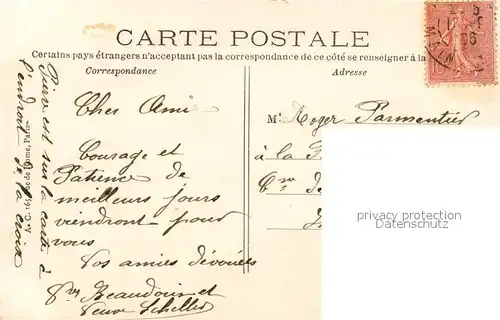 CARTE POSTALE
Certains pays étrangers n'acceptant pas la correspondance de ce côté se renseigner à la
Correspondance
Adresse
Cher Ami
Courage et
Patience de
meilleurs jours
viendront pour
vous
Vos amies dévouées
Beaudoin et
Veuve Scheller
Pierre est sur la carte à
l'endroit de la croix
Rome, Paris
M Roger Parmentier
à la
privacy protection
www.oldthing.net